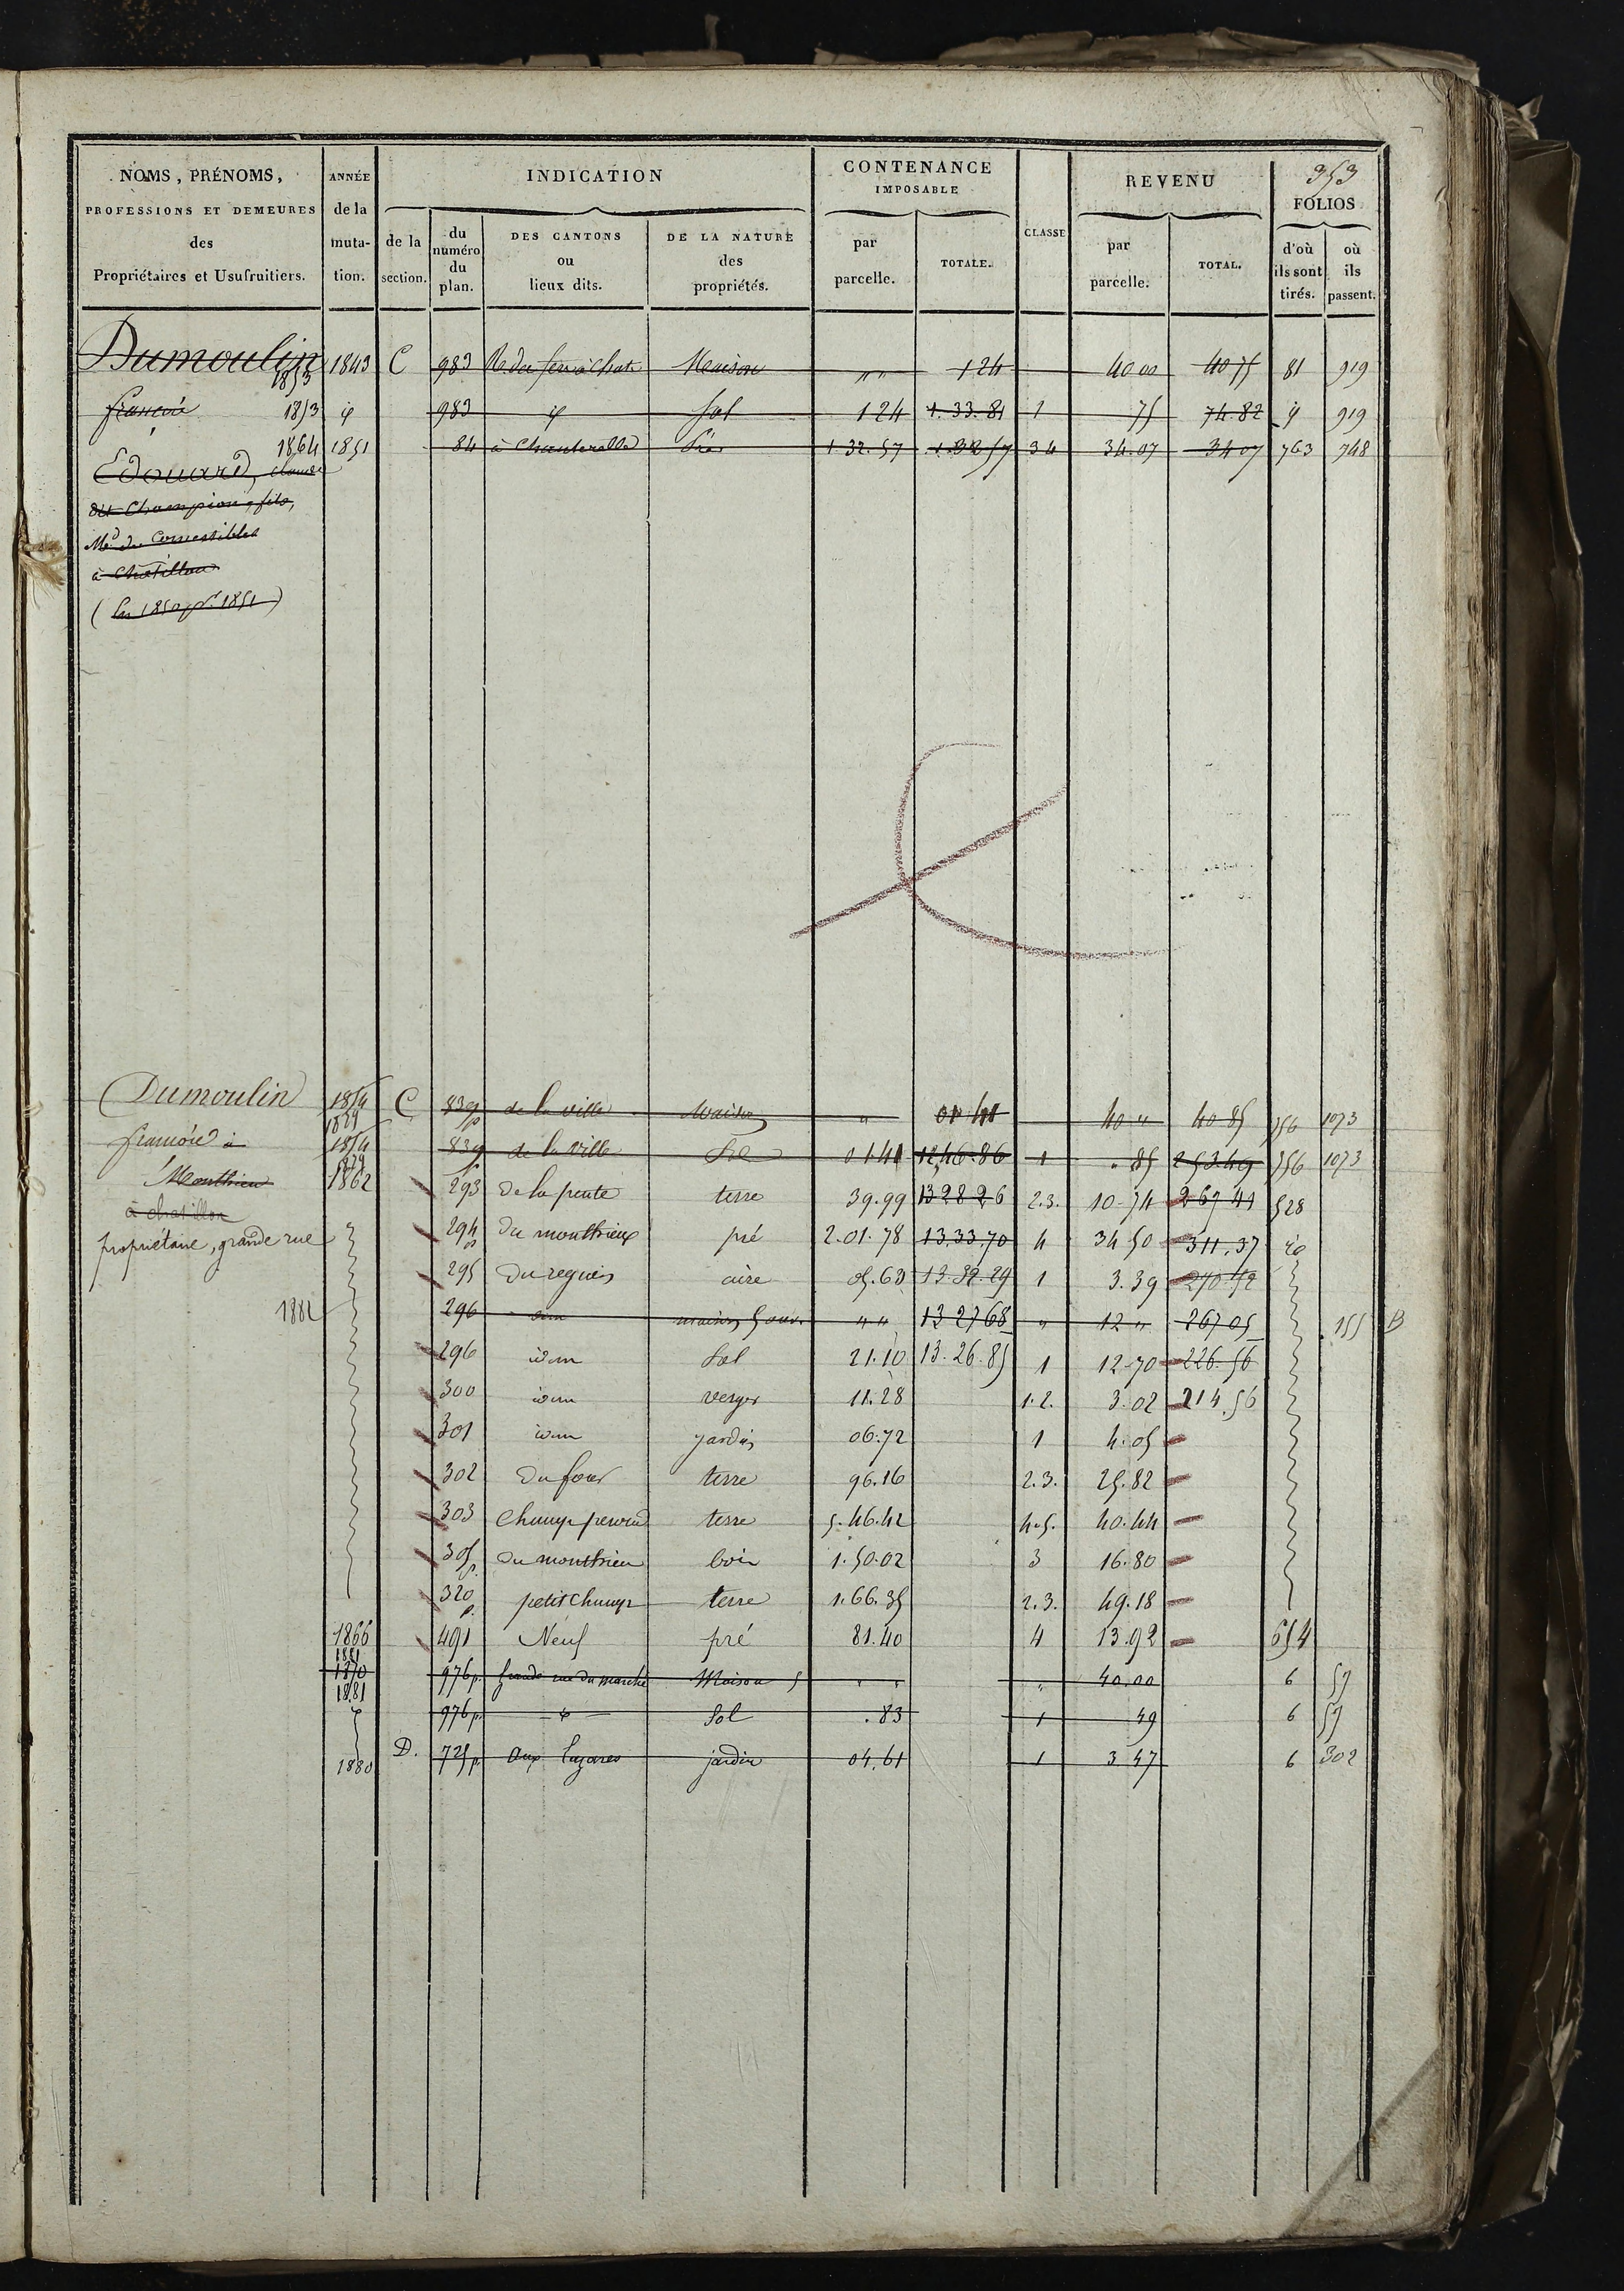 353
NOMS, PRÉNOMS, PROFESSIONS ET DEMEURES des Propriétaires et Usufruitiers.
ANNÉE de la muta-tion.
INDICATION
de la section.
du numéro du plan.
DES CANTONS ou lieux dits.
DE LA NATURE des propriétés.
CONTENANCE IMPOSABLE
par parcelle.
TOTALE.
CLASSE
REVENU
par parcelle.
TOTAL.
FOLIOS
d'où ils sont tirés.
où ils passent.
Dumoulin 1853 1843 C 983 Maison " " 1 24 40 00 40 75 81 919
françois 1853 983 Sol 1 24 1.33.81 1 75 74.82 919
1864 1851 84 à Chanterelle Prés 1.32.57 34 34.07 34 07 763 748
Edouard, claude
dit Champion, fils,
Md de Comestibles
à Châtillon
(en 1850 pr 1851)
Dumoulin 1854 C 839 p de la ville Maison " 01 41 40 " 40 85 356 1073
1879
françois à 1854 839 de la ville Sol 01 41 12,46.86 1 " 85 253.49 356 1073
1879
Monthieu 1862 293 de la pente terre 39.99 13 28 26 2.3. 10-74 267 41 528
à chatillon
propriétaire, grande rue 294 p du monthieux pré 2.01.78 13.33.70 4 34 50 311.37
295 aire 05.63 13.32.29 1 3.39 270.42
1882 296 idem " " 13 27 68 " 12 " 267 05 155 B
296 idem Sol 21.10 13.26.85 1 12-70 226.56
300 idem verger 11.28 1.2. 3.02 214.56
301 idem jardin 06.72 1 4.05
302 du four terre 96.16 2.3. 25.82
303 terre 5.46.42 4.5. 40.44
305 p. du monthieu bois 1.50.02 3 16.80
320 p. petit Champ terre 1.66.35 2.3. 49.18
1866 491 Neuf pré 81.40 4 13.92 654
1881
1870 976 p. Grande rue du marché Maison " " " 40.00 6 57
1881
976 p. Sol .83 1 49 6 57
1880 D. 725 p. Aux Lazares jardin 04.61 1 3 47 6 302